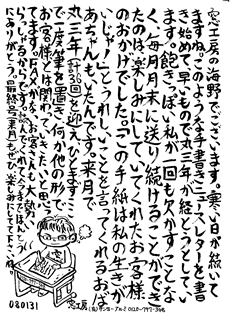 窓工房の海野でございます。寒い日が続いて
ますね。このような手書きニュースレターを書
き始めて、早いもので丸三年が経とうとしてい
ます。飽きっぽい私が一回も欠かすことな
く、毎月月末に送り続けることができ
たのは、楽しみにしてくれたお客様
のおかげでした。「この手紙は私の生きが
いじゃ」とうれしいことを言ってくれるおば
あちゃんもいたんです。来月で
丸三年(計36回)を迎え、ひとまずここ
で一度筆を置き、何か他の形で
お客様とは関わっていきたいと思い
ます。FAXがなくお客さんも大勢
らっしゃるからです。読んでくれて今まで本当
にありがとう。最終号(来月)もぜひ楽しみにしてて下さいね。
080131
窓工房